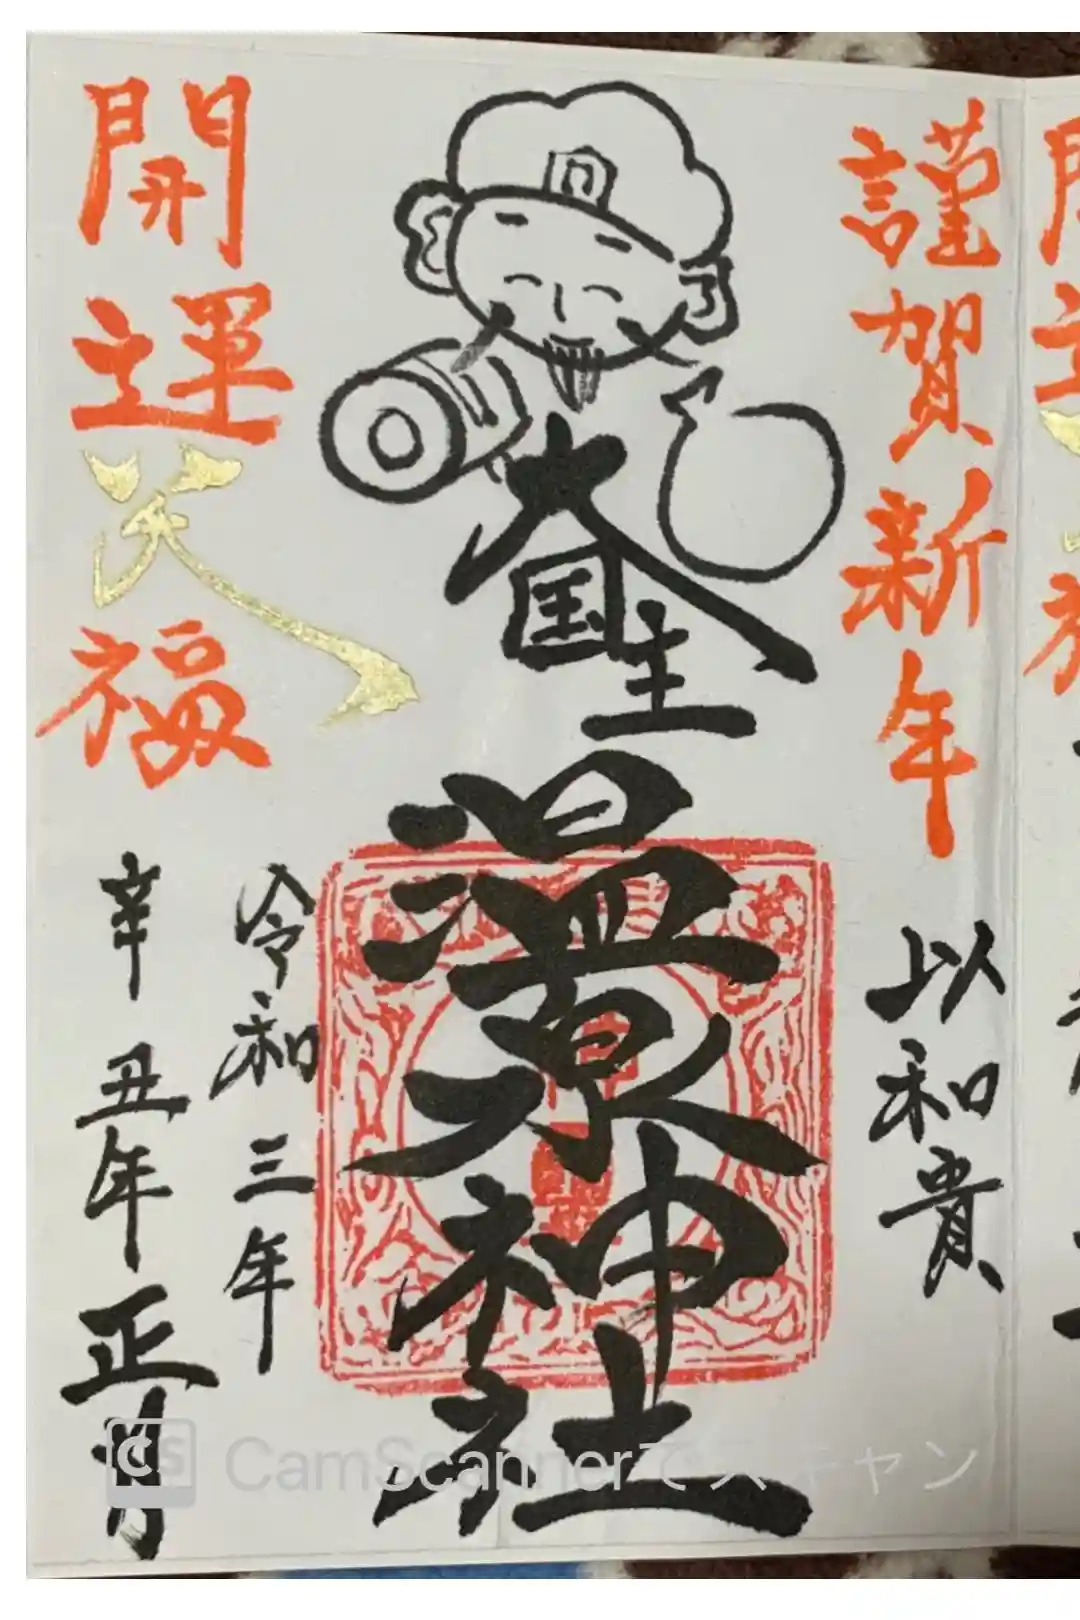 謹賀新年
以和貴
大国主
温泉神社
令和三年
開運笑福
辛丑年正月
CamScannerでスキャン